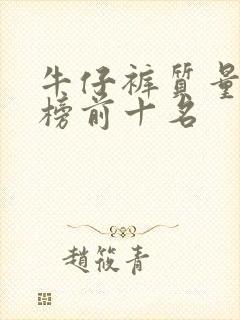 牛仔裤质量
榜前十名
趙筱青